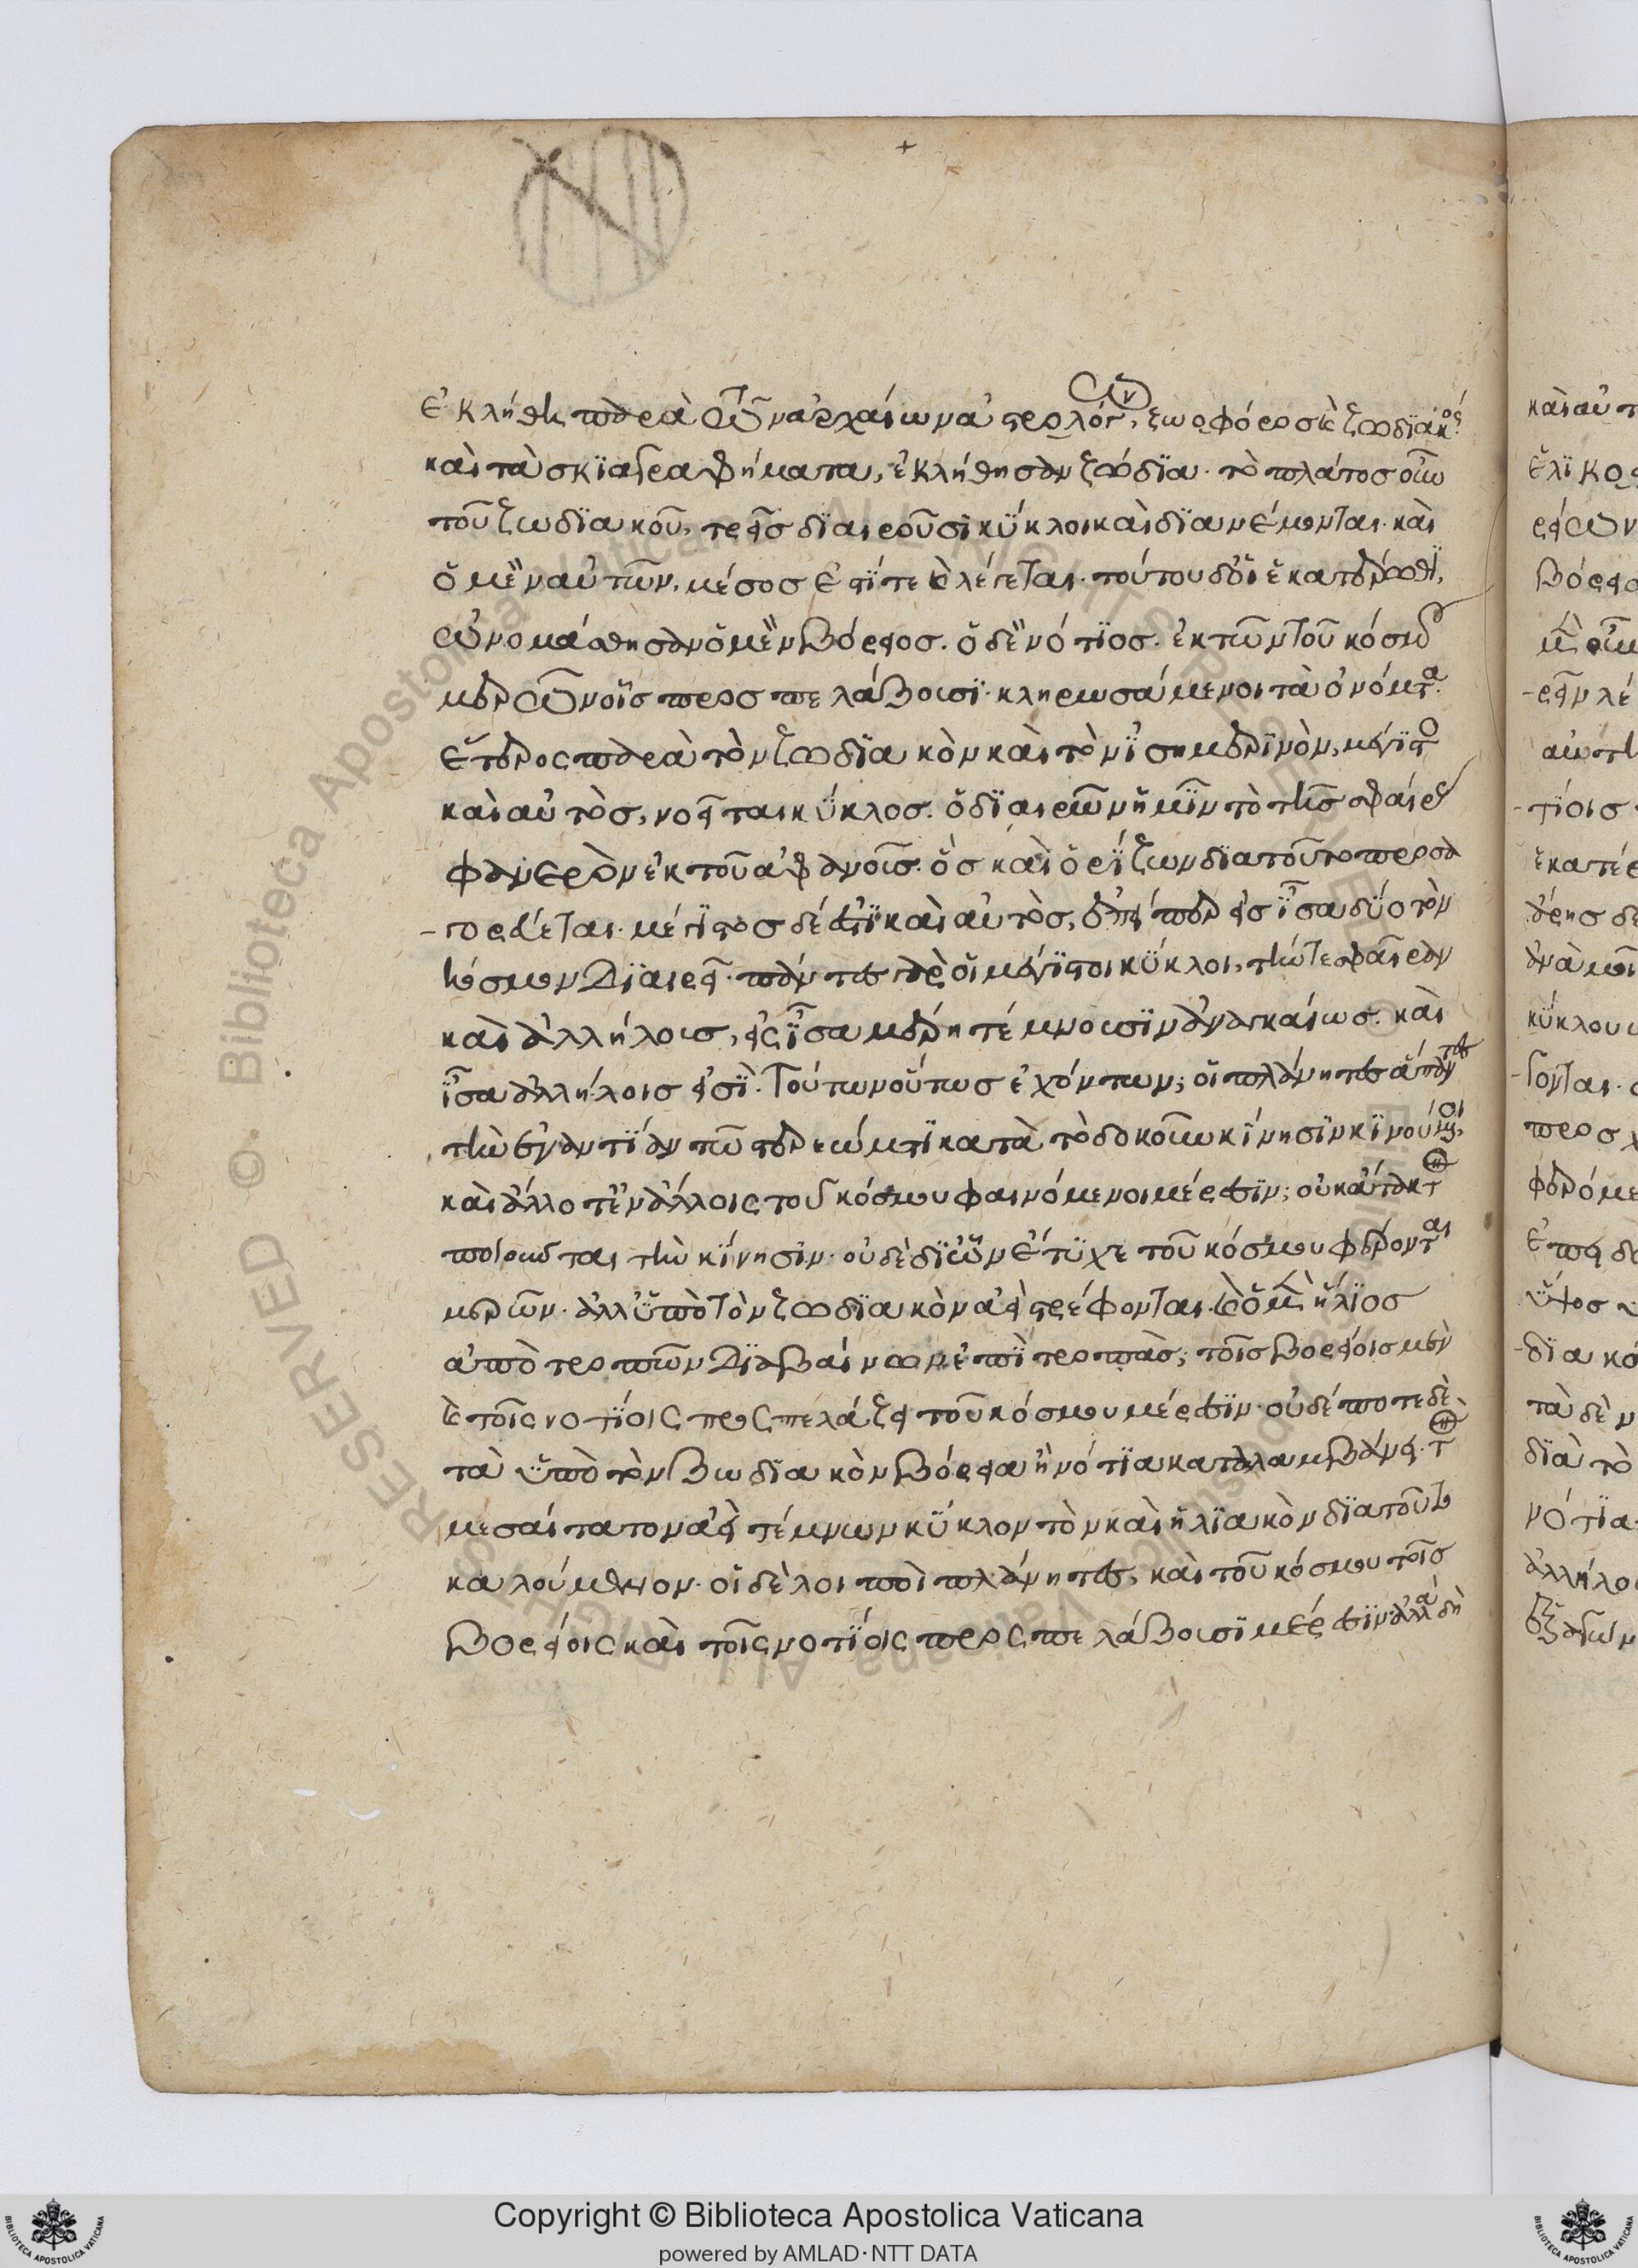 ἐκλήθη παρὰ τῶν ἀρχαίων ἀστρολόγων, ζωοφόρος καὶ ζωδϊακός
καὶ τὰ σκϊαγραφήματα, ἐκλήθησαν ζώδϊα. τὸ πλάτος οὖν
τοῦ ζωδϊακοῦ, τρεῖς δϊαιροῦσϊ κύκλοι καὶ δϊανέμονται. καὶ
ὁ μὲν αὐτῶν, μέσος ἐστί τε καὶ λέγεται. τούτου δ' οἱ ἑκατέρωθϊ,
ὠνομάσθησαν ὁ μὲν βόρειος. ὁ δὲ νότϊος. ἐκ τῶν τοῦ κόσμου
μερῶν οἷς προσπελάζουσϊ. κληρωσάμενοι τὰ ὀνόματα.
ἕτερος παρὰ τὸν ζωδϊακὸν καὶ τὸν ἰσημερϊνὸν, μέγϊστος
καὶ αὐτὸς, νοεῖται κύκλος. ὁ δϊαιρῶν ἡμῖν τὸ τῆς σφαίρας
φανερὸν ἐκ τοῦ ἀφανοῦς. ὃς καὶ ὁρϊζων δϊατοῦτο προσα
γορεύεται. μέγϊστος δέ ἐστϊ καὶ αὐτὸς, ἐπείπερ εἰς ἴσα δύο τὸν
κόσμον δϊαιρεῖ. πάντες γὰρ οἱ μέγϊστοι κύκλοι, τήν τε σφαῖραν
καὶ ἀλλήλους, εἰς ἴσα μέρη τέμνουσϊν ἀναγκαίως. καὶ
ἴσα ἀλλήλοις εἰσϊ. τούτων οὕτως ἐχόντων, οἱ πλάνητες ἅπαντες
τὴν ἐναντίαν τῷ στερεώματϊ κατὰ τὸ δοκοῦν κίνησϊν κϊνούμενοι,
καὶ ἄλλοτ' ἐν ἄλλοις τοῦ κόσμου φαινόμενοι μέρεσϊν, οὐκ ἄτακτον
ποιοῦνται τὴν κίνησϊν. οὐδὲ δϊ' ὧν ἔτυχε τοῦ κόσμου φέρονται
μερῶν. ἀλλ' ὑπὸ τὸν ζωδϊακὸν ἀεὶ στρέφονται. καὶ ὁ μὲν ἥλϊος
ἀπὸ τροπῶν δϊαβαίνων ἐπὶ τροπὰς, τοῖς βορείοις μὲν
καὶ τοῖς νοτίοις προσπελάζει τοῦ κόσμου μέρεσϊν. οὐδέποτε δὲ
τὰ ὑπὸ τὸν ζωδϊακὸν βόρεια ἢ νότϊα καταλαμβάνει. τὸν
μεσαίτατον ἀεὶ τέμνων κύκλον τὸν καὶ ἡλϊακὸν δϊατοῦτο
καλούμενον. οἱ δὲ λοιποὶ πλάνητες, καὶ τοῦ κόσμου τοῖς
βορείοις καὶ τοῖς νοτίοις προσπελάζουσϊ μέρεσϊν ἀλλὰ δὴ
Copyright © Biblioteca Apostolica Vaticana
powered by AMLAD·NTT DATA